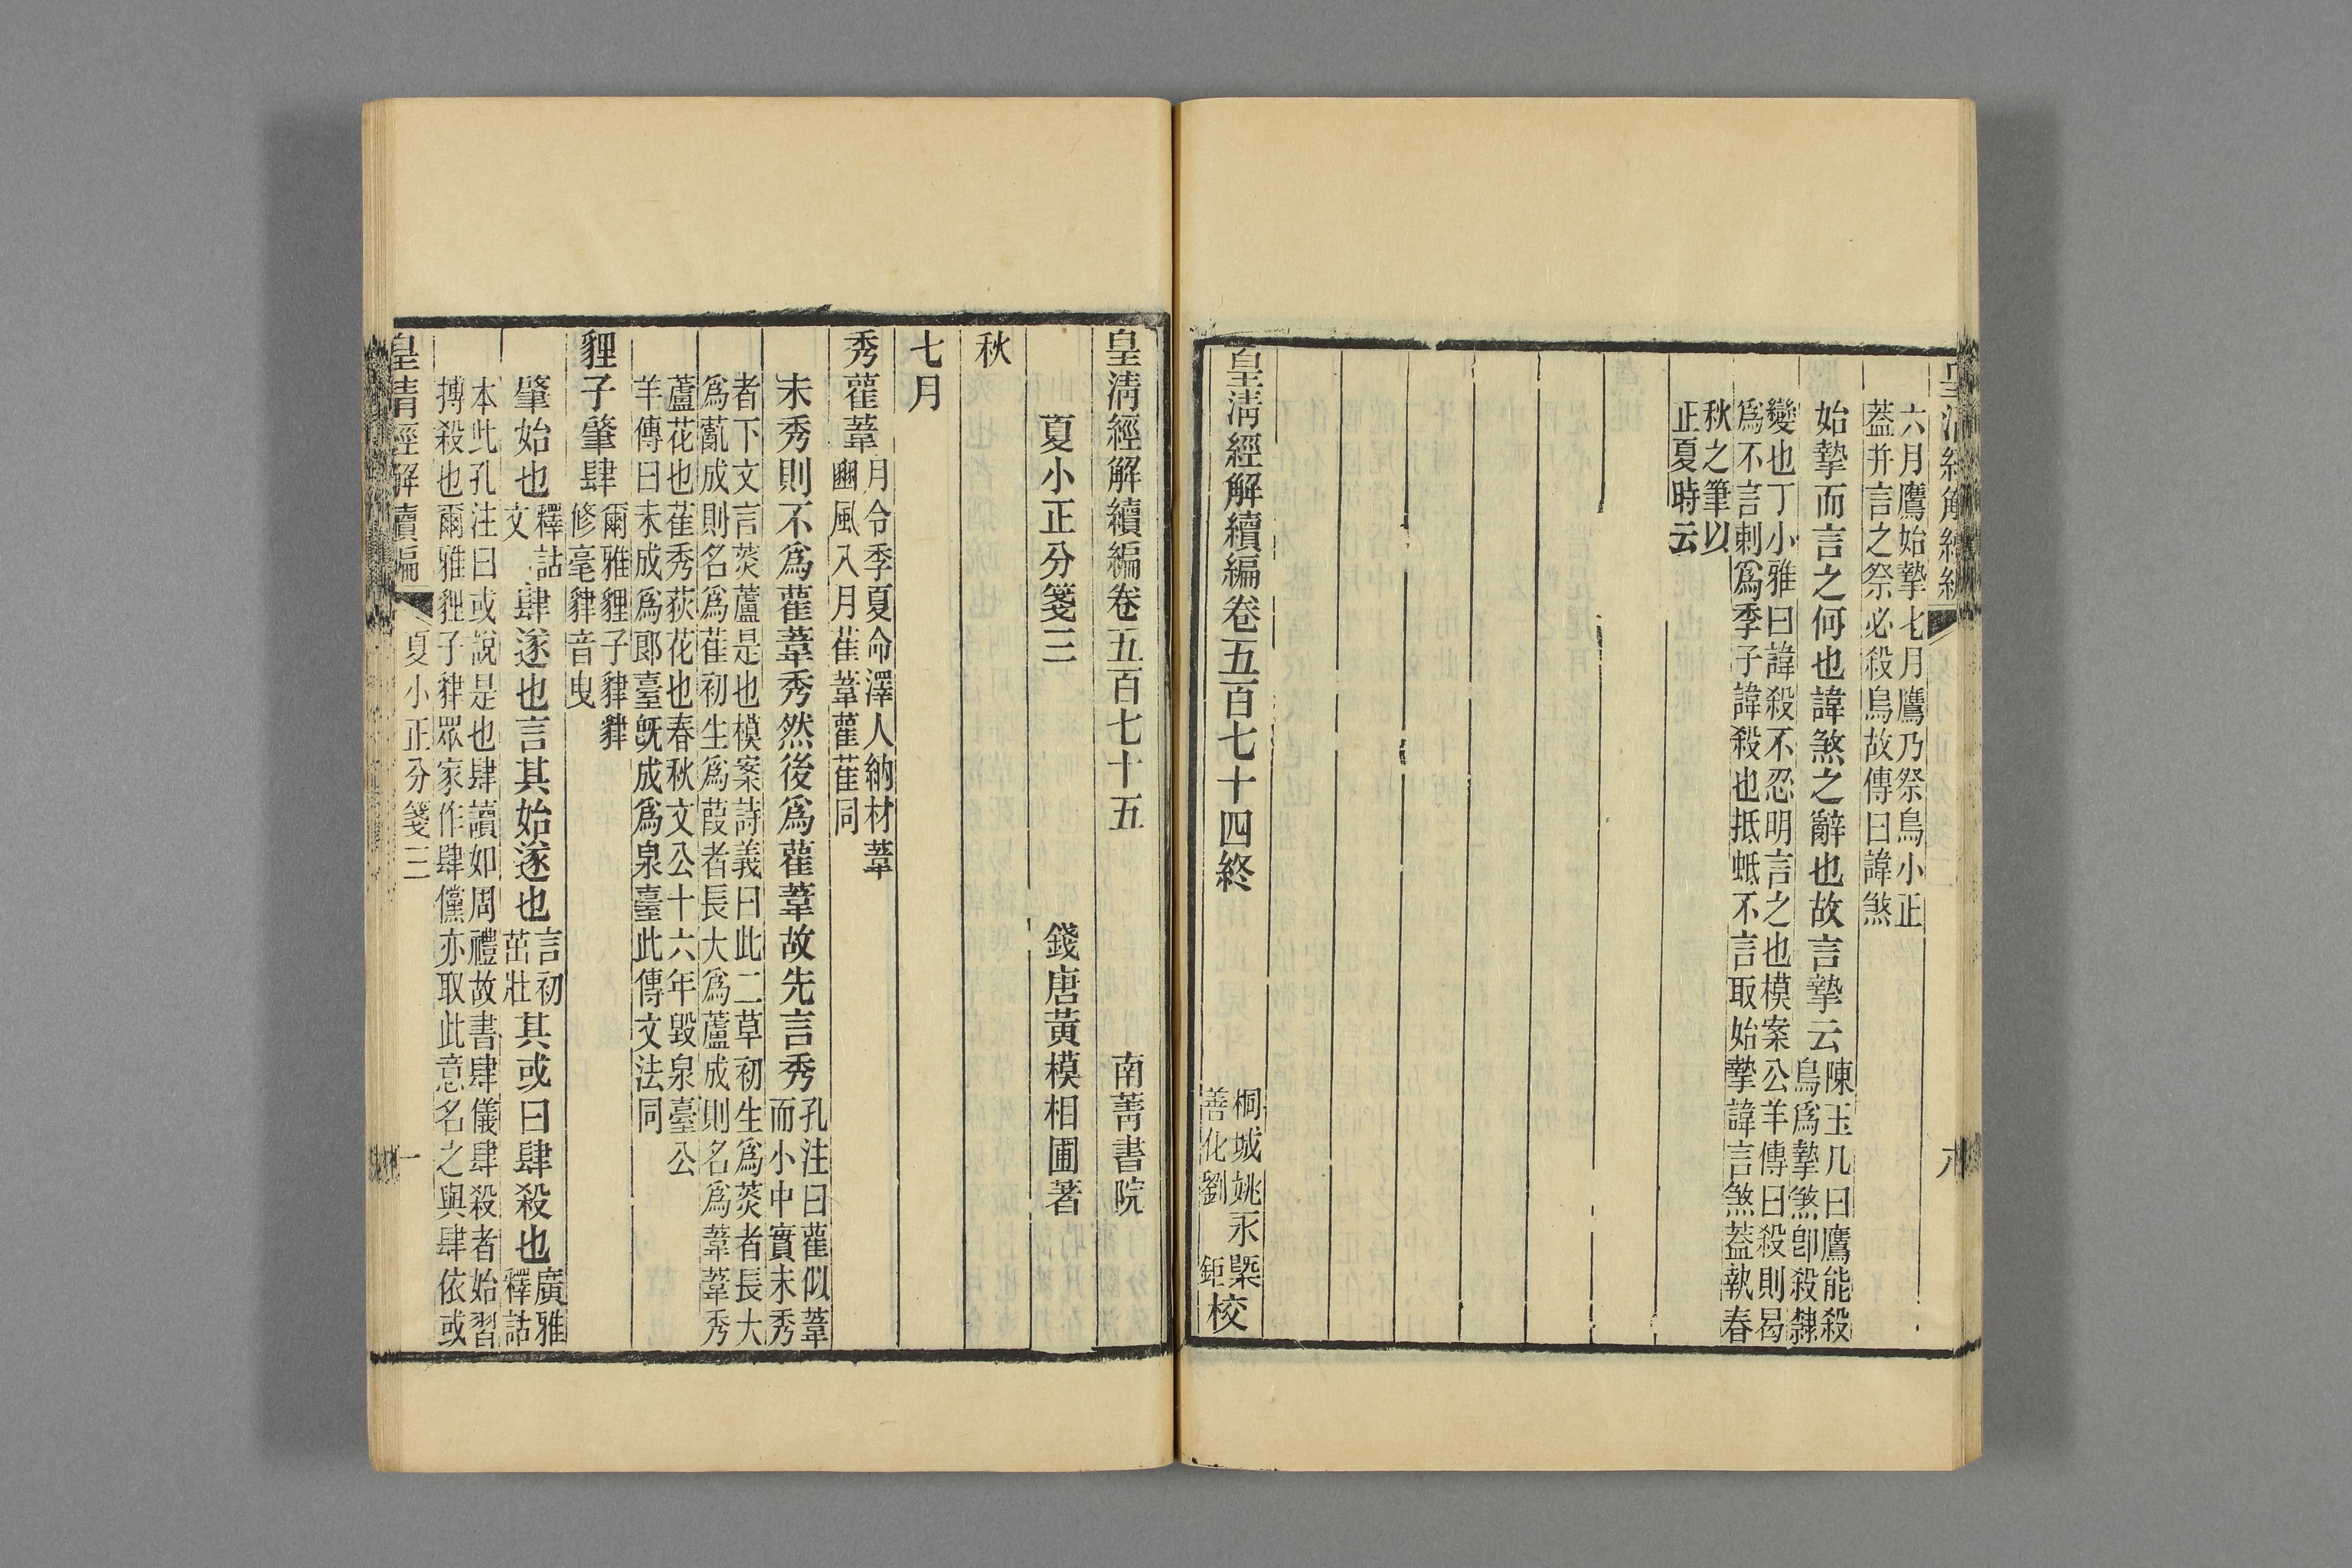 六月鷹始摯七月鷹乃祭鳥小正
蓋并言之祭必殺鳥故傳曰諱煞
始摯而言之何也諱煞之辭也故言摯云陳玉几曰鷹能殺
鳥爲摯煞卽殺隸
變也丁小雅曰諱殺不忍明言之也模案公羊傳曰殺則曷
爲不言刺爲季子諱殺也抵蚳不言取始摯諱言煞蓋執春
秋之筆以
正夏時云
皇淸經解續編卷五百七十四終
桐城姚永㮣
善化劉鉅
校
皇淸經解續編卷五百七十五
南菁書院
夏小正分箋三
錢唐黃模相圃著
秋
七月
秀雚葦月令季夏命澤人納材葦
豳風八月萑葦雚萑同
未秀則不爲雚葦秀然後爲雚葦故先言秀孔注曰雚似葦
而小中實未秀
者下文言菼蘆是也模案詩義曰此二草初生爲菼者長大
爲薍成則名爲萑初生爲葭者長大爲蘆成則名爲葦葦秀
蘆花也萑秀荻花也春秋文公十六年毀泉臺公
羊傳曰未成爲郞臺旣成爲泉臺此傳文法同
貍子肇肆爾雅貍子貄貄
修毫貄音曳
肇始也釋詁
文
肆遂也言其始遂也言初
茁壯
其或曰肆殺也廣雅
釋詁
本此孔注曰或說是也肆讀如周禮故書肆儀肆殺者始習
搏殺也爾雅貍子貄眾家作肆儻亦取此意名之與肆依或
皇淸經解續編
夏小正分箋三
一